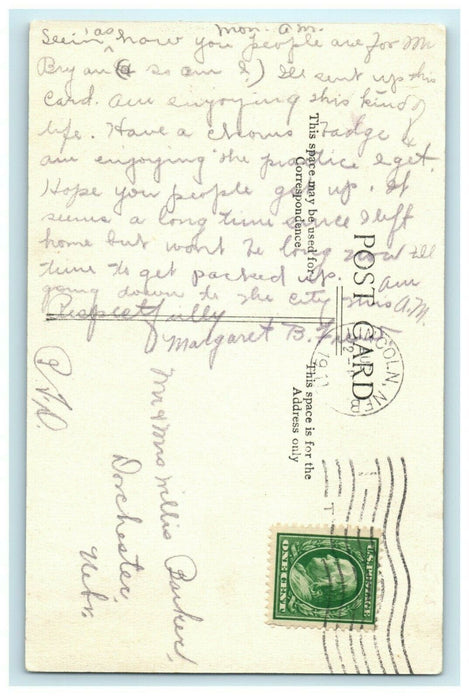 Mon. A.M.
Seein' as how you people are for Mr
Bryan (& so am I,) I'll sent up this
card. am enjoying this kind of
life. Have a chorus badge &
am enjoying the practice I get.
Hope you people go up. It
seems a long time since I left
home but won't be long now till
time to get packed up. am
going down to the city this A.M.
Respectfully
Margaret B.
P.T.O.
Mr & Mrs Willis Parker,
Dorchester,
Nebr.
This space may be used for
Correspondence.
POST CARD
This space is for the
Address only
LINCOLN, NEBR
U.S. POSTAGE
ONE CENT